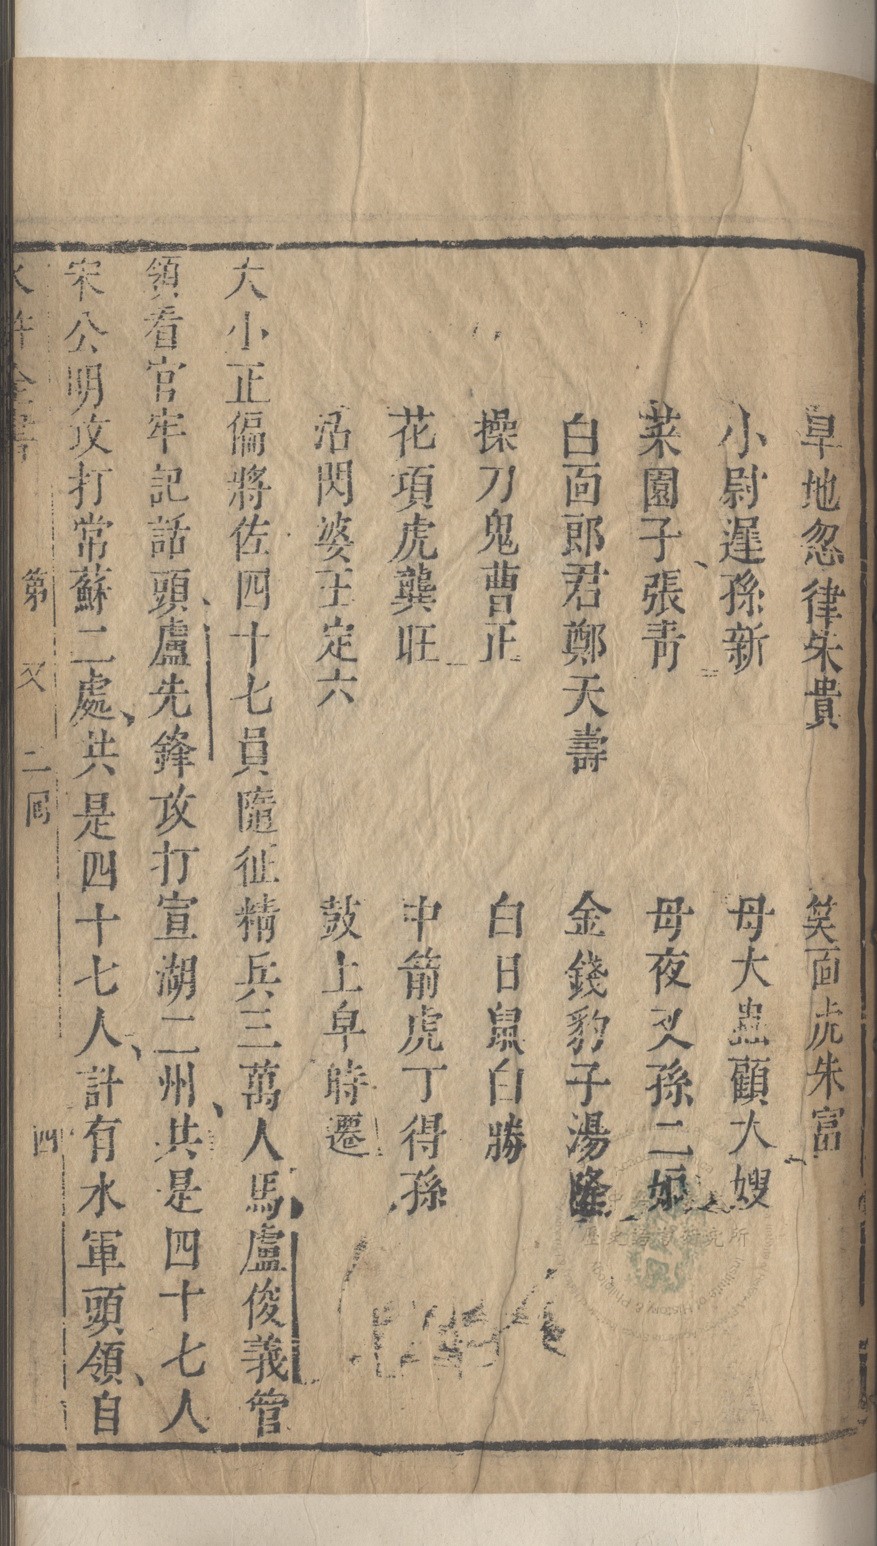 旱地忽律朱貴　笑面虎朱富
小尉遲孫新　母大蟲顧大嫂
菜園子張青　母夜叉孫二娘
白面郎君鄭天壽　金錢豹子湯隆
操刀鬼曹正　白日鼠白勝
花項虎龔旺　中箭虎丁得孫
活閃婆王定六　鼓上皁時遷
大小正偏將佐四十七員隨征精兵三萬人馬盧俊義管
領看官牢記話頭盧先鋒攻打宣湖二州共是四十七人
宋公明攻打常蘇二處共是四十七人計有水軍頭領自
水滸全書　第　又　二回　四
歷史語言研究所